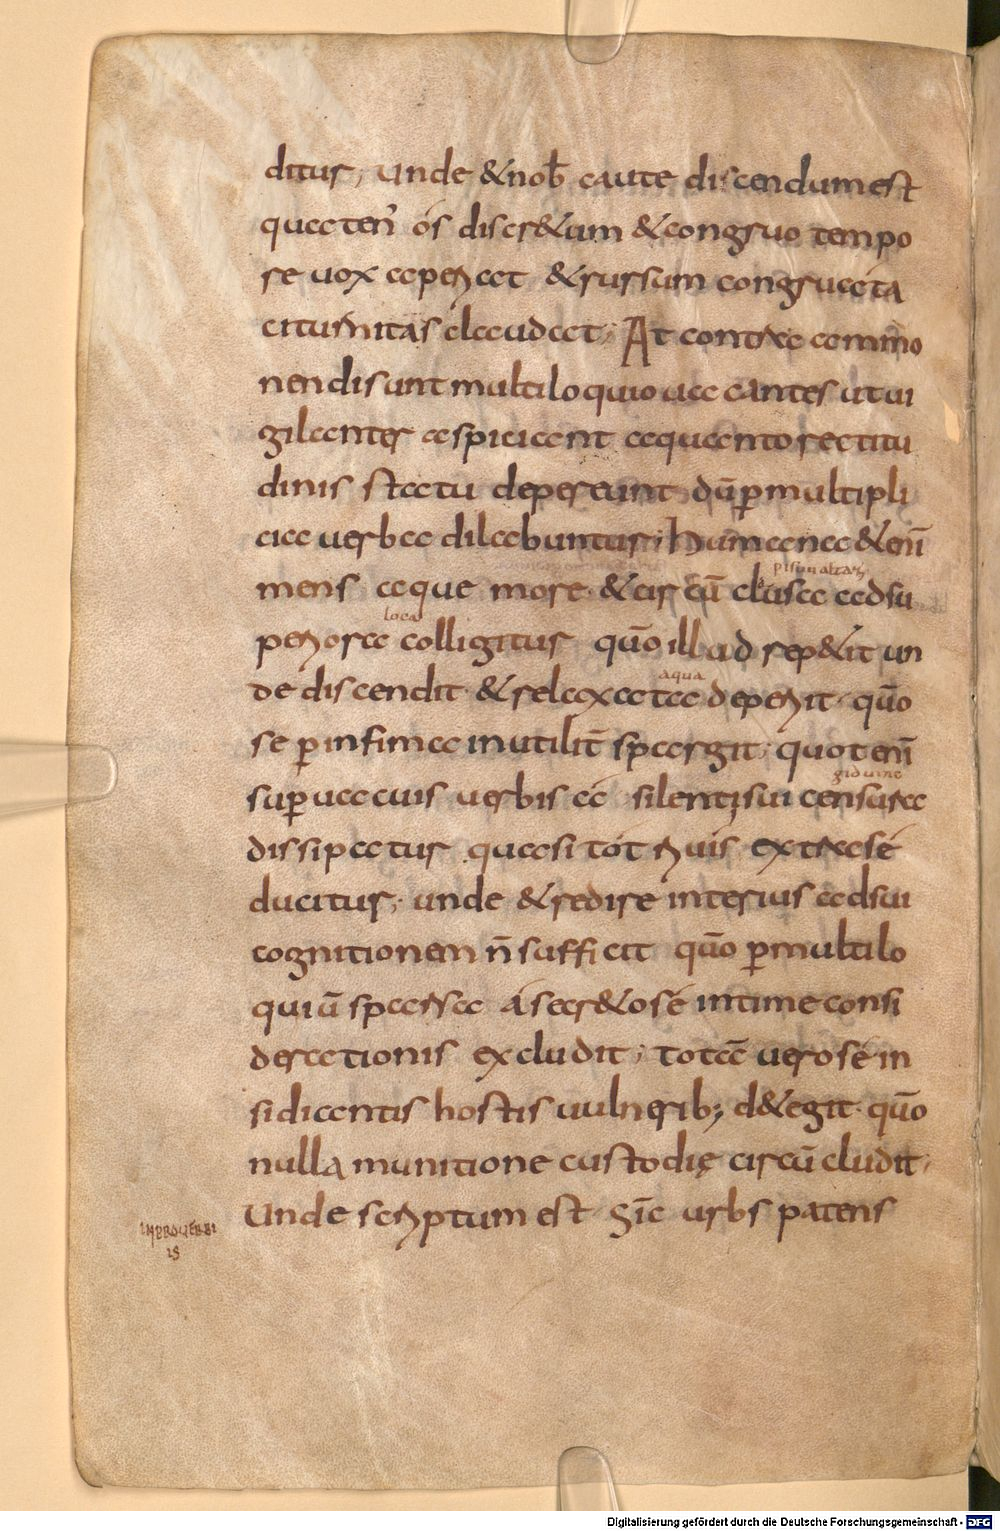 ditur, unde & nob̄ caute discendum est
quaten̄ ós discr&um & congruo tempo
re vox aperiat & rursum congrua ta
citurnitas claudat; At contra ammo
nendi sunt multiloquio vacantes ut ui
gilanter aspiciant a quanto rectitu
dinis statu depereunt dū p̄ multipli
cia uerba dilabuntur; Humana &eni̅
pisunaltar
mens aque more & circū clusa ad su
loca
periora colligitur quō illud rep&it un
aqua
de discendit & relaxata deperit quō
se p̄ infima inutilit̄ spargit; quot eni̅
giduuinc
sup̄uacuis uerbis a silentii sui censura
dissipatur quasi tót riuis extra sé
ducitur; unde & redire interius ad sui
cognitionem n̄ sufficit quō p̄ multilo
quiū sparsa á secr&o sé intime consi
derationis excludit; totā uero sé in
sidiantis hostis uulnerib; d&egit quō
nulla munitione custodię circū cludit;
Unde scriptum est Sic̄ urbs patens
IN PROUERBI
IS
Digitalisierung gefördert durch die Deutsche Forschungsgemeinschaft - DFG